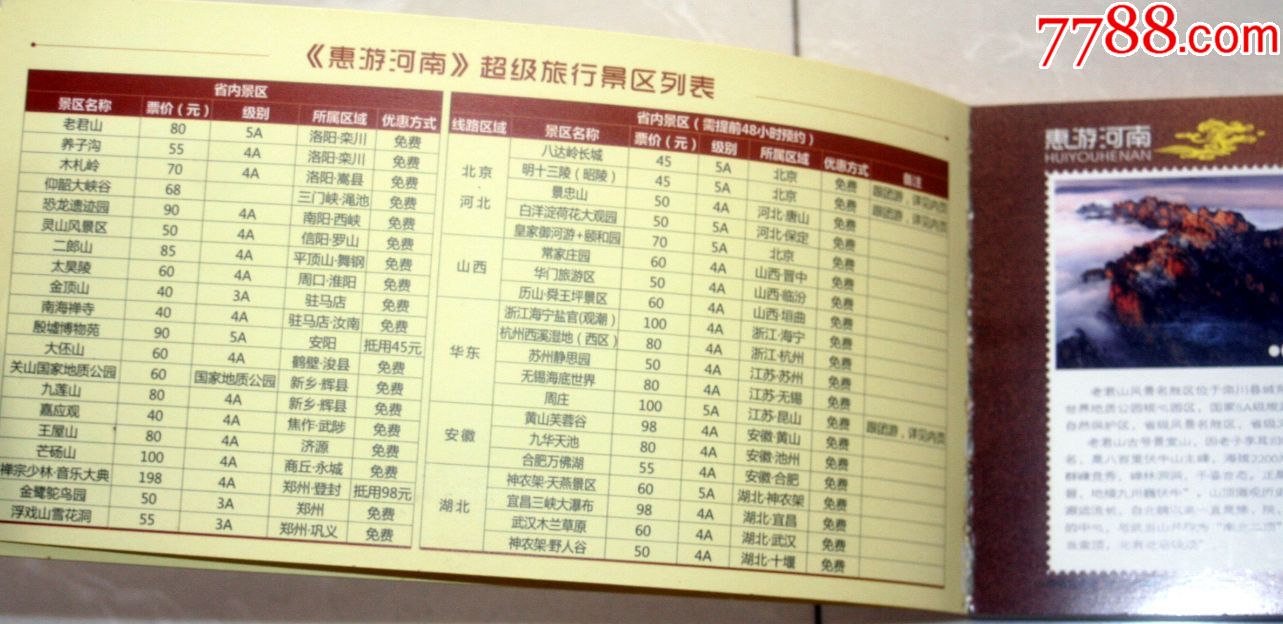 7788.com
《惠游河南》超级旅行景区列表
省内景区
景区名称 票价（元） 级别 所属区域 优惠方式
老君山 80 5A 洛阳·栾川 免费
养子沟 55 4A 洛阳·栾川 免费
木札岭 70 4A 洛阳·嵩县 免费
仰韶大峡谷 68 三门峡·渑池 免费
恐龙遗迹园 90 4A 南阳·西峡 免费
灵山风景区 50 4A 信阳·罗山 免费
二郎山 85 4A 平顶山·舞钢 免费
太昊陵 60 4A 周口·淮阳 免费
金顶山 40 3A 驻马店 免费
南海禅寺 40 4A 驻马店·汝南 免费
殷墟博物苑 90 5A 安阳 抵用45元
大伾山 60 4A 鹤壁·浚县 免费
关山国家地质公园 60 国家地质公园 新乡·辉县 免费
九莲山 80 4A 新乡·辉县 免费
嘉应观 40 4A 焦作·武陟 免费
王屋山 80 4A 济源 免费
芒砀山 100 4A 商丘·永城 免费
禅宗少林·音乐大典 198 4A 郑州·登封 抵用98元
金鹭鸵鸟园 50 3A 郑州 免费
浮戏山雪花洞 55 3A 郑州·巩义 免费
省内景区（需提前48小时预约）
线路区域 景区名称 票价（元） 级别 所属区域 优惠方式 备注
北京·河北
八达岭长城 45 5A 北京 免费 跟团游，详见内页
明十三陵（昭陵） 45 5A 北京 免费 跟团游，详见内页
景忠山 50 4A 河北·唐山 免费
白洋淀荷花大观园 50 5A 河北·保定 免费
皇家御河游+颐和园 70 5A 北京 免费
山西
常家庄园 60 4A 山西·晋中 免费
华门旅游区 50 4A 山西·临汾 免费
历山·舜王坪景区 60 4A 山西·垣曲 免费
华东
浙江海宁盐官(观潮) 100 4A 浙江·海宁 免费
杭州西溪湿地（西区） 80 4A 浙江·杭州 免费
苏州静思园 50 4A 江苏·苏州 免费
无锡海底世界 80 4A 江苏·无锡 免费
周庄 100 5A 江苏·昆山 免费 跟团游，详见内页
安徽
黄山芙蓉谷 98 4A 安徽·黄山 免费
九华天池 80 4A 安徽·池州 免费
合肥万佛湖 55 4A 安徽·合肥 免费
湖北
神农架·天燕景区 60 5A 湖北·神农架 免费
宜昌三峡大瀑布 98 4A 湖北·宜昌 免费
武汉木兰草原 60 4A 湖北·武汉 免费
神农架·野人谷 50 4A 湖北·十堰 免费
惠游河南
HUIYOUHENAN
老君山风景名胜区位于栾川县城
世界地质公园核心园区，国家5A级
自然保护区，省级风景名胜区，省级
老君山古号景室山，因老子李耳
名，是八百里伏牛山主峰，海拔2200